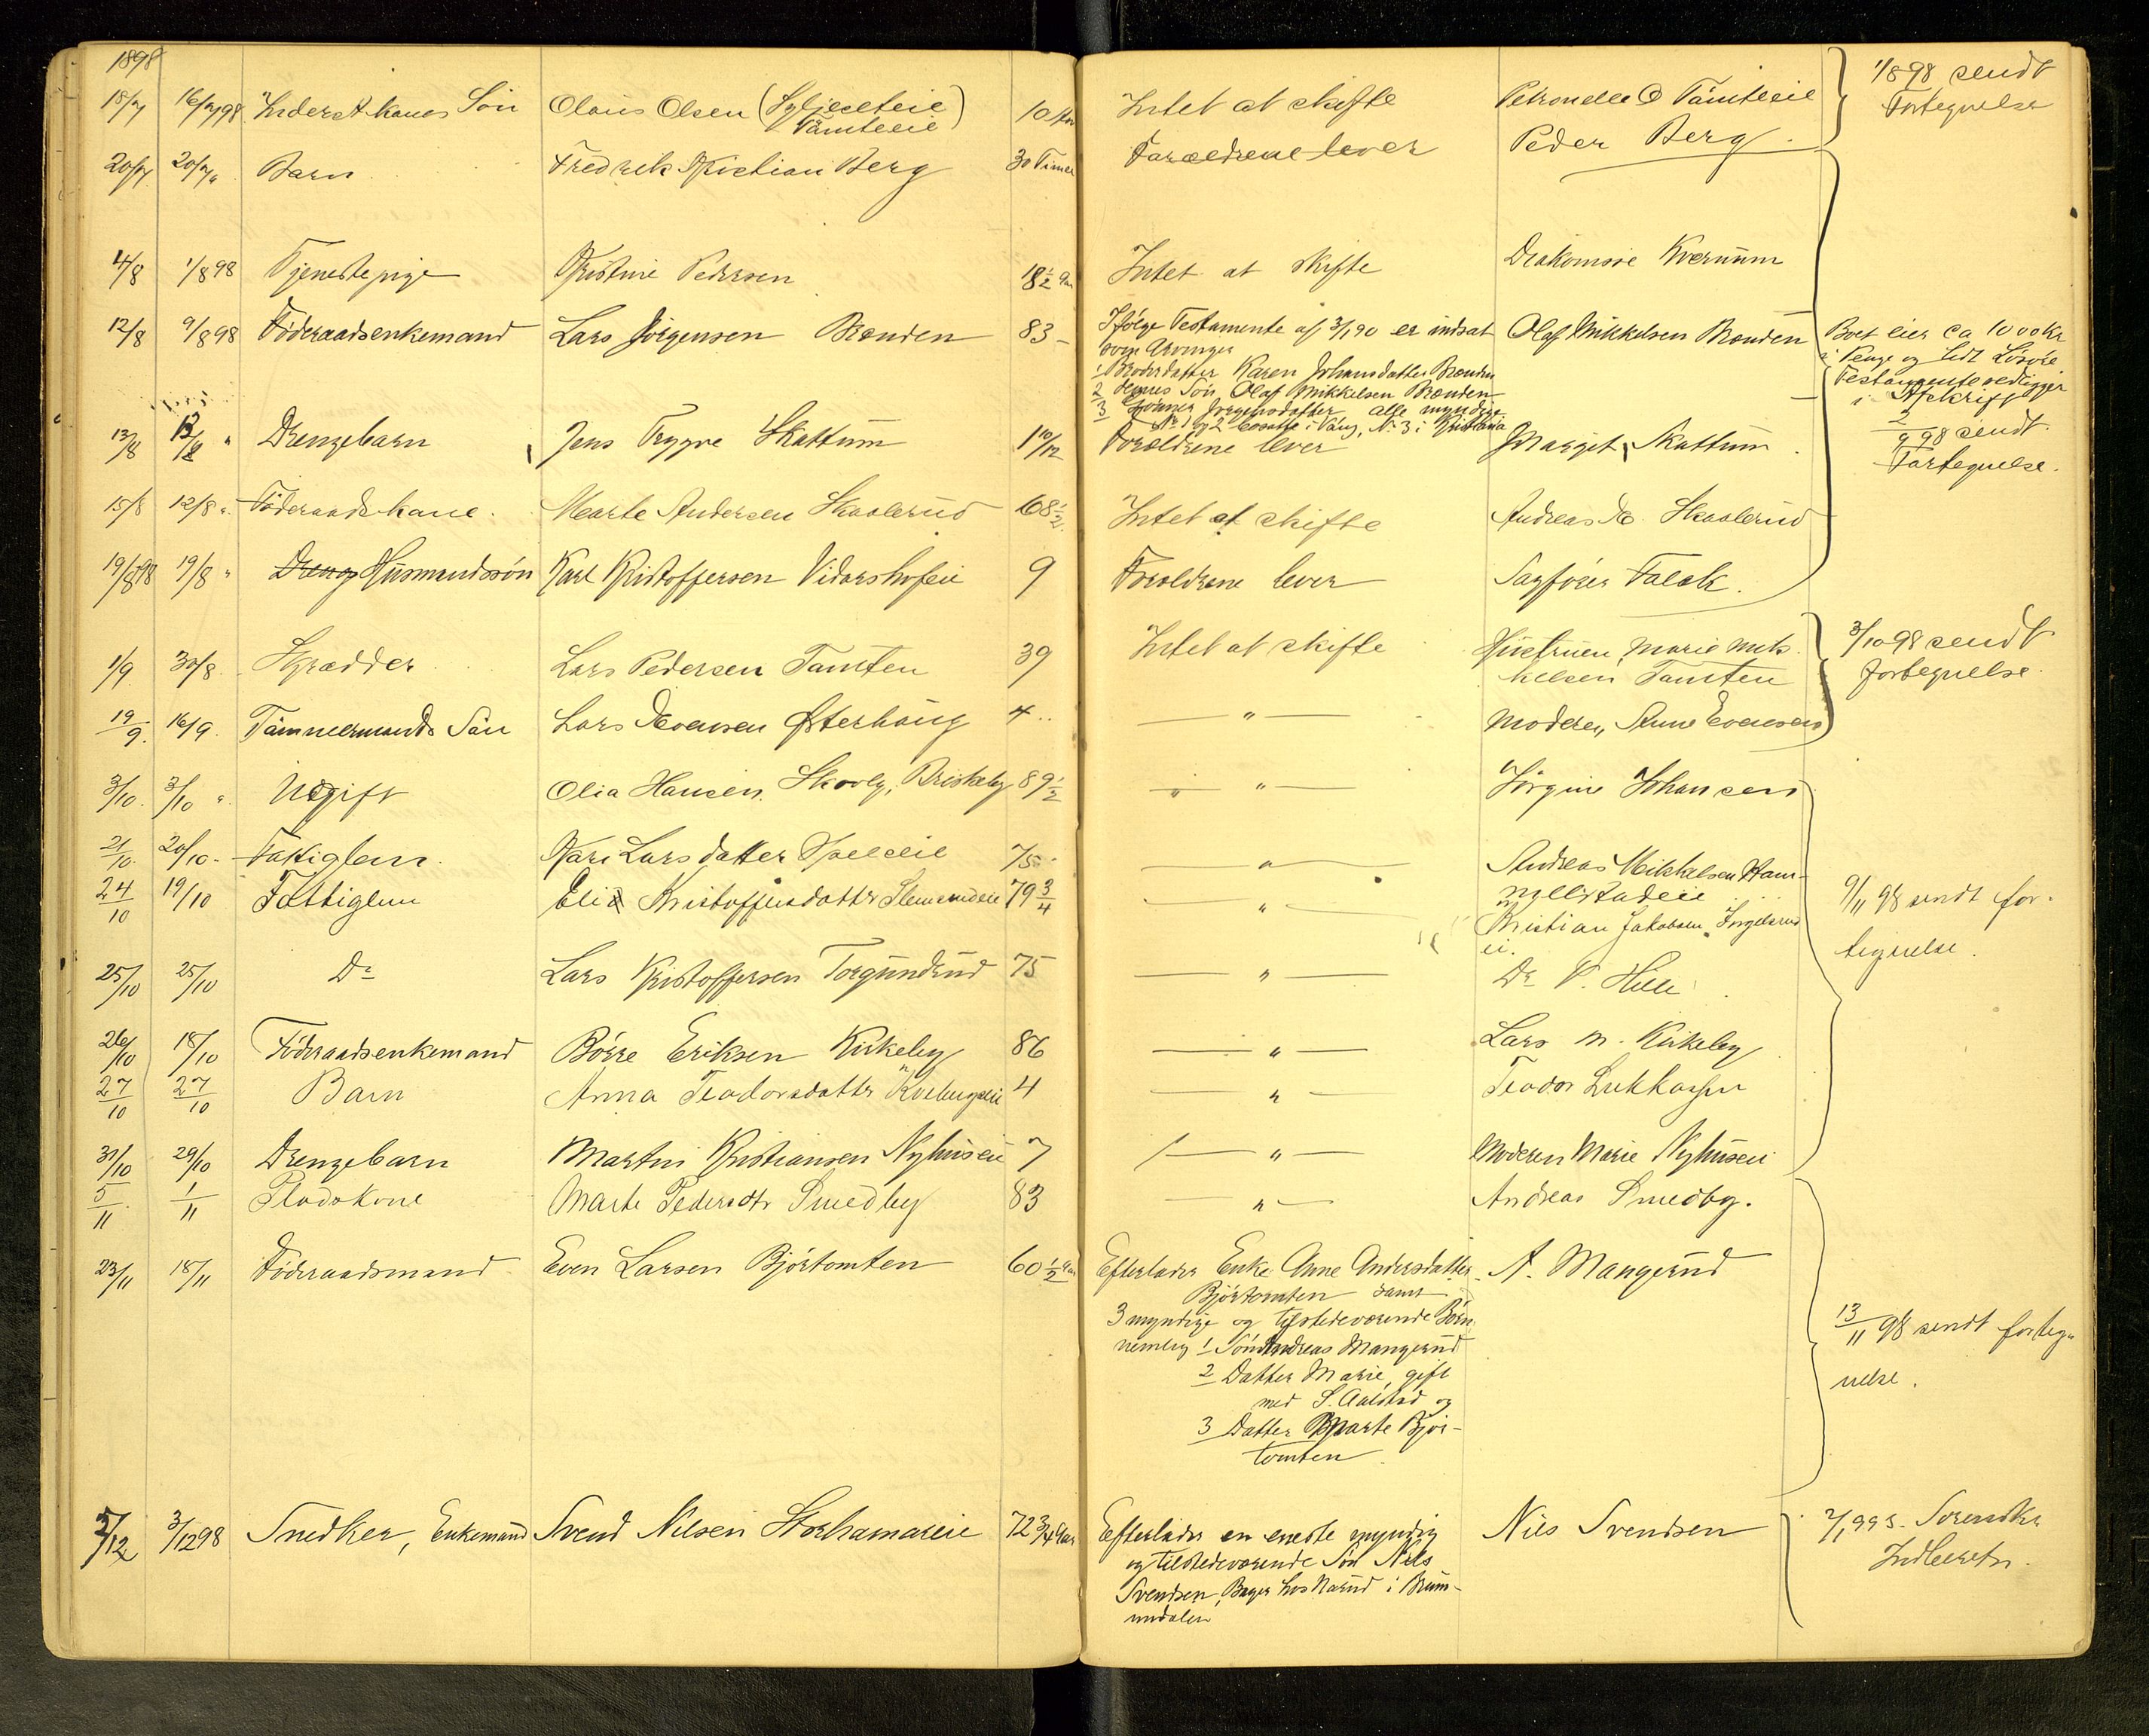 1898
18/7 16/7 98 Inderst. kones Søn Olaus Olsen (Lyljeeteie 10 Aar Intet at skifte Petronelle O Tømteeie 1/8 98 sendt
Tømteeie) Fortegnelse
20/7 20/7 " Barn Fredrik Kristian Berg 30 Timer Forældrene lever Peder Berg.
4/8 1/8 98 Tjenestepige Kristine Pedersen 18 1/2 Aar Intet at skifte Diakonisse Kvernum
12/8 9/8 98 Föderaadsenkemand Lars Jörgensen Brænden 83 - Ifölge Testamente af 3/1 90 er indsat Olaf Mikkelsen Brænden Boet eier ca 1000 Kr
som Arvinger i Penge og lidt Lösöre
1 Broderdatter Karen Johansdatter Brænden Testamente vedligger
2 dennes Sön Olaf Mikkelsen Brænden i Afskrift
3 Jörgensdatter alle myndige.
No 1 og 2 bosatte i Vang, No 3 i Kristiania
13/8 13/8 " Drengebarn Jens Trygve Skattum 1 10/12 Forældrene lever Marget Skattum. 2/9 98 sendt
Fortegnelse.
15/8 12/8 " Föderaadskone. Marte Andersen Skaalerud 68 1/2 Intet at skifte Andreas Skaalerud
19/8 98 19/8 " Dreng Husmandssøn Karl Kristoffersen Vidarshofeie 9 Forældrene lever Sagfører Falck.
1/9 30/8 Skrædder Lars Pedersen Tomten 39 Intet at skifte Hustruen, Marie Mik- 3/10 98 sendt
kelsen Tomten fortegnelse.
19/9. 16/9. Tømmermands Søn Lars Evensen Østerhaug 4 " — " — Moderen, Anne Evensen
3/10. 3/10 " Ugift Olia Hansen. Skovly, Briskeby 89 1/2 — " — Jörgine Johansen
21/10. 20/10 - Fattiglem. Kari Larsdatter 75 - — " — Andreas Mikkelsen Ham-
24/10 19/10 Fattiglem Eli Kristoffersdatter 79 3/4 — " — 9/11 98 sendt for-
Kristian Jakobsen
ei. tegnelse.
25/10 25/10 Do Lars Kristoffersen Torgundrud 75 — " — Dr V. Hille
26/10 18/10 Föderaadsenkemand Börre Eriksen Kirkeby 86 — " — Lars M. Kirkeby
27/10 27/10 Barn Anna Teodorsdatter Kvebergseie 4 — " — Teodor Lukkassen
31/10 29/10 Drengebarn Martin Kristiansen Nyhuseie 7 — " — Moderen Marie Nyhuseie
5/11. 1/11 Pladskone Marte Pedersdtr Smedby 83 — " — Andreas Smedby.
23/11 18/11 Föderaadsmand Even Larsen Björtomten 60 1/2 Aar Efterlader Enke Anne Andersdatter A. Mangerud
Björtomten samt
3 myndige og tilstedeværende Børn 13/11 98 sendt forteg-
nemlig 1 Sön Andreas Mangerud
2 Datter Marie, gift nelse.
med S. Aalstad og
3 Datter Marte Bjør-
tomten
5/12 3/12 98 Snedker, Enkemand Svend Nilsen Storhamareie 72 3/4 Aar Efterlader en eneste myndig Nils Svendsen 2/1 99 s. Sorenskr
og tilstedeværende Søn Nils Indberetn.
Svendsen, Bager hos Narud i Brum-
unddalen